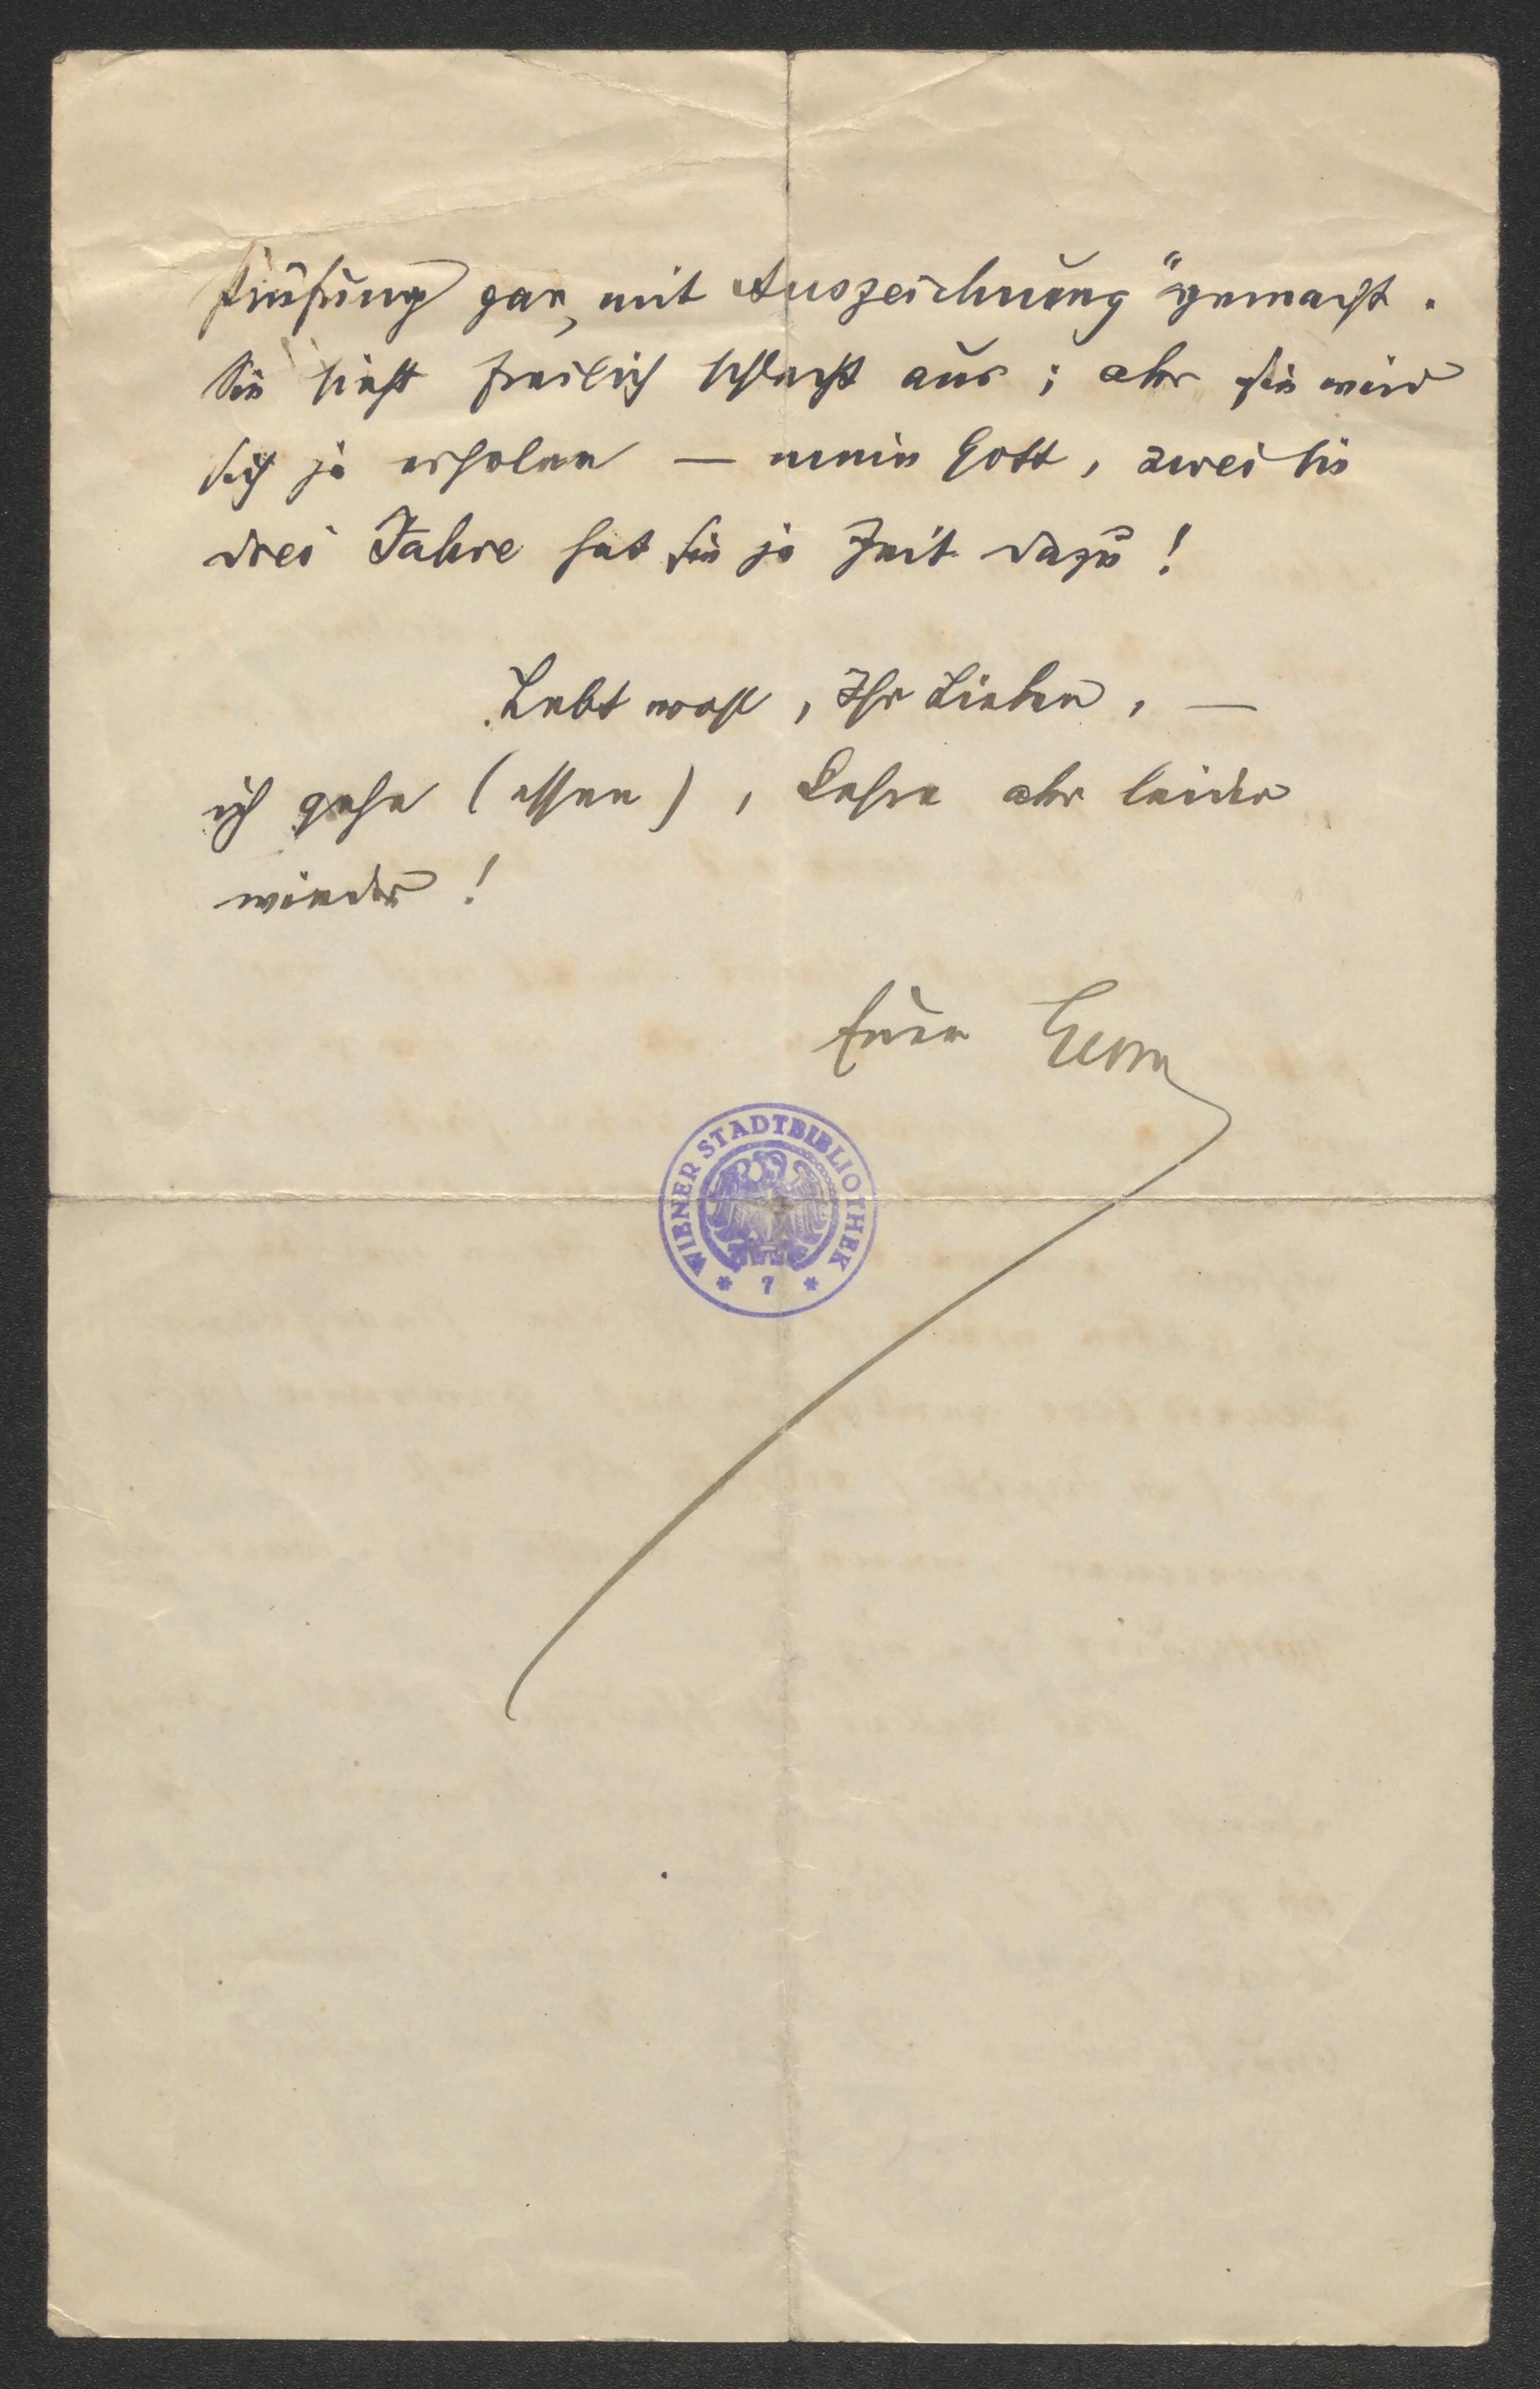 Prüfung gar „mit Auszeichnung“ gemacht.
Sie sieht freilich schlecht aus; aber sie wird
sich ja erholen — mein Gott, zwei bis
drei Jahre hat sie ja Zeit dazu!
Lebt wohl, Ihr Lieben, —
ich gehe (essen), kehre aber leider
wieder!
Euer
WIENER STADTBIBLIOTHEK
* 7 *